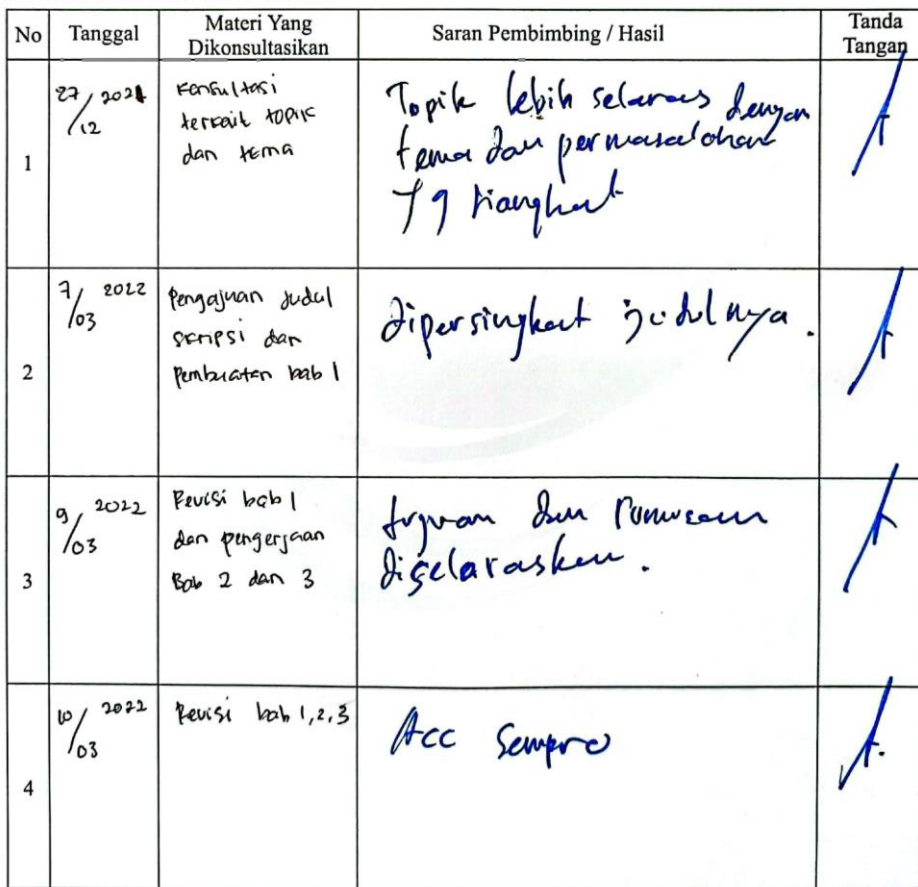 No Tanggal Materi Yang Dikonsultasikan Saran Pembimbing / Hasil Tanda Tangan
1
27/12 2021
Konsultasi
terkait topik
dan tema
Topik lebih selaras dengan
tema dan permasalahan
yg diangkat
2
7/03 2022
Pengajuan Judul
skripsi dan
Pembuatan bab 1
dipersingkat judulnya.
3
9/03 2022
Revisi bab 1
dan pengerjaan
Bab 2 dan 3
tujuan dan rumusan
diselaraskan.
4
10/03 2022
Revisi bab 1,2,3
Acc Sempro